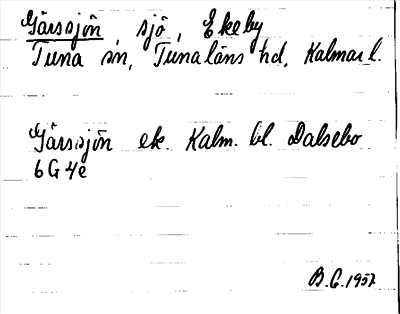 Gårssjön, sjö, Ekeby
Tuna sn, Tunaläns hd, Kalmar l.
Gårssjön ek. Kalm. bl. Dalsebo
6G4e
B.G. 1957